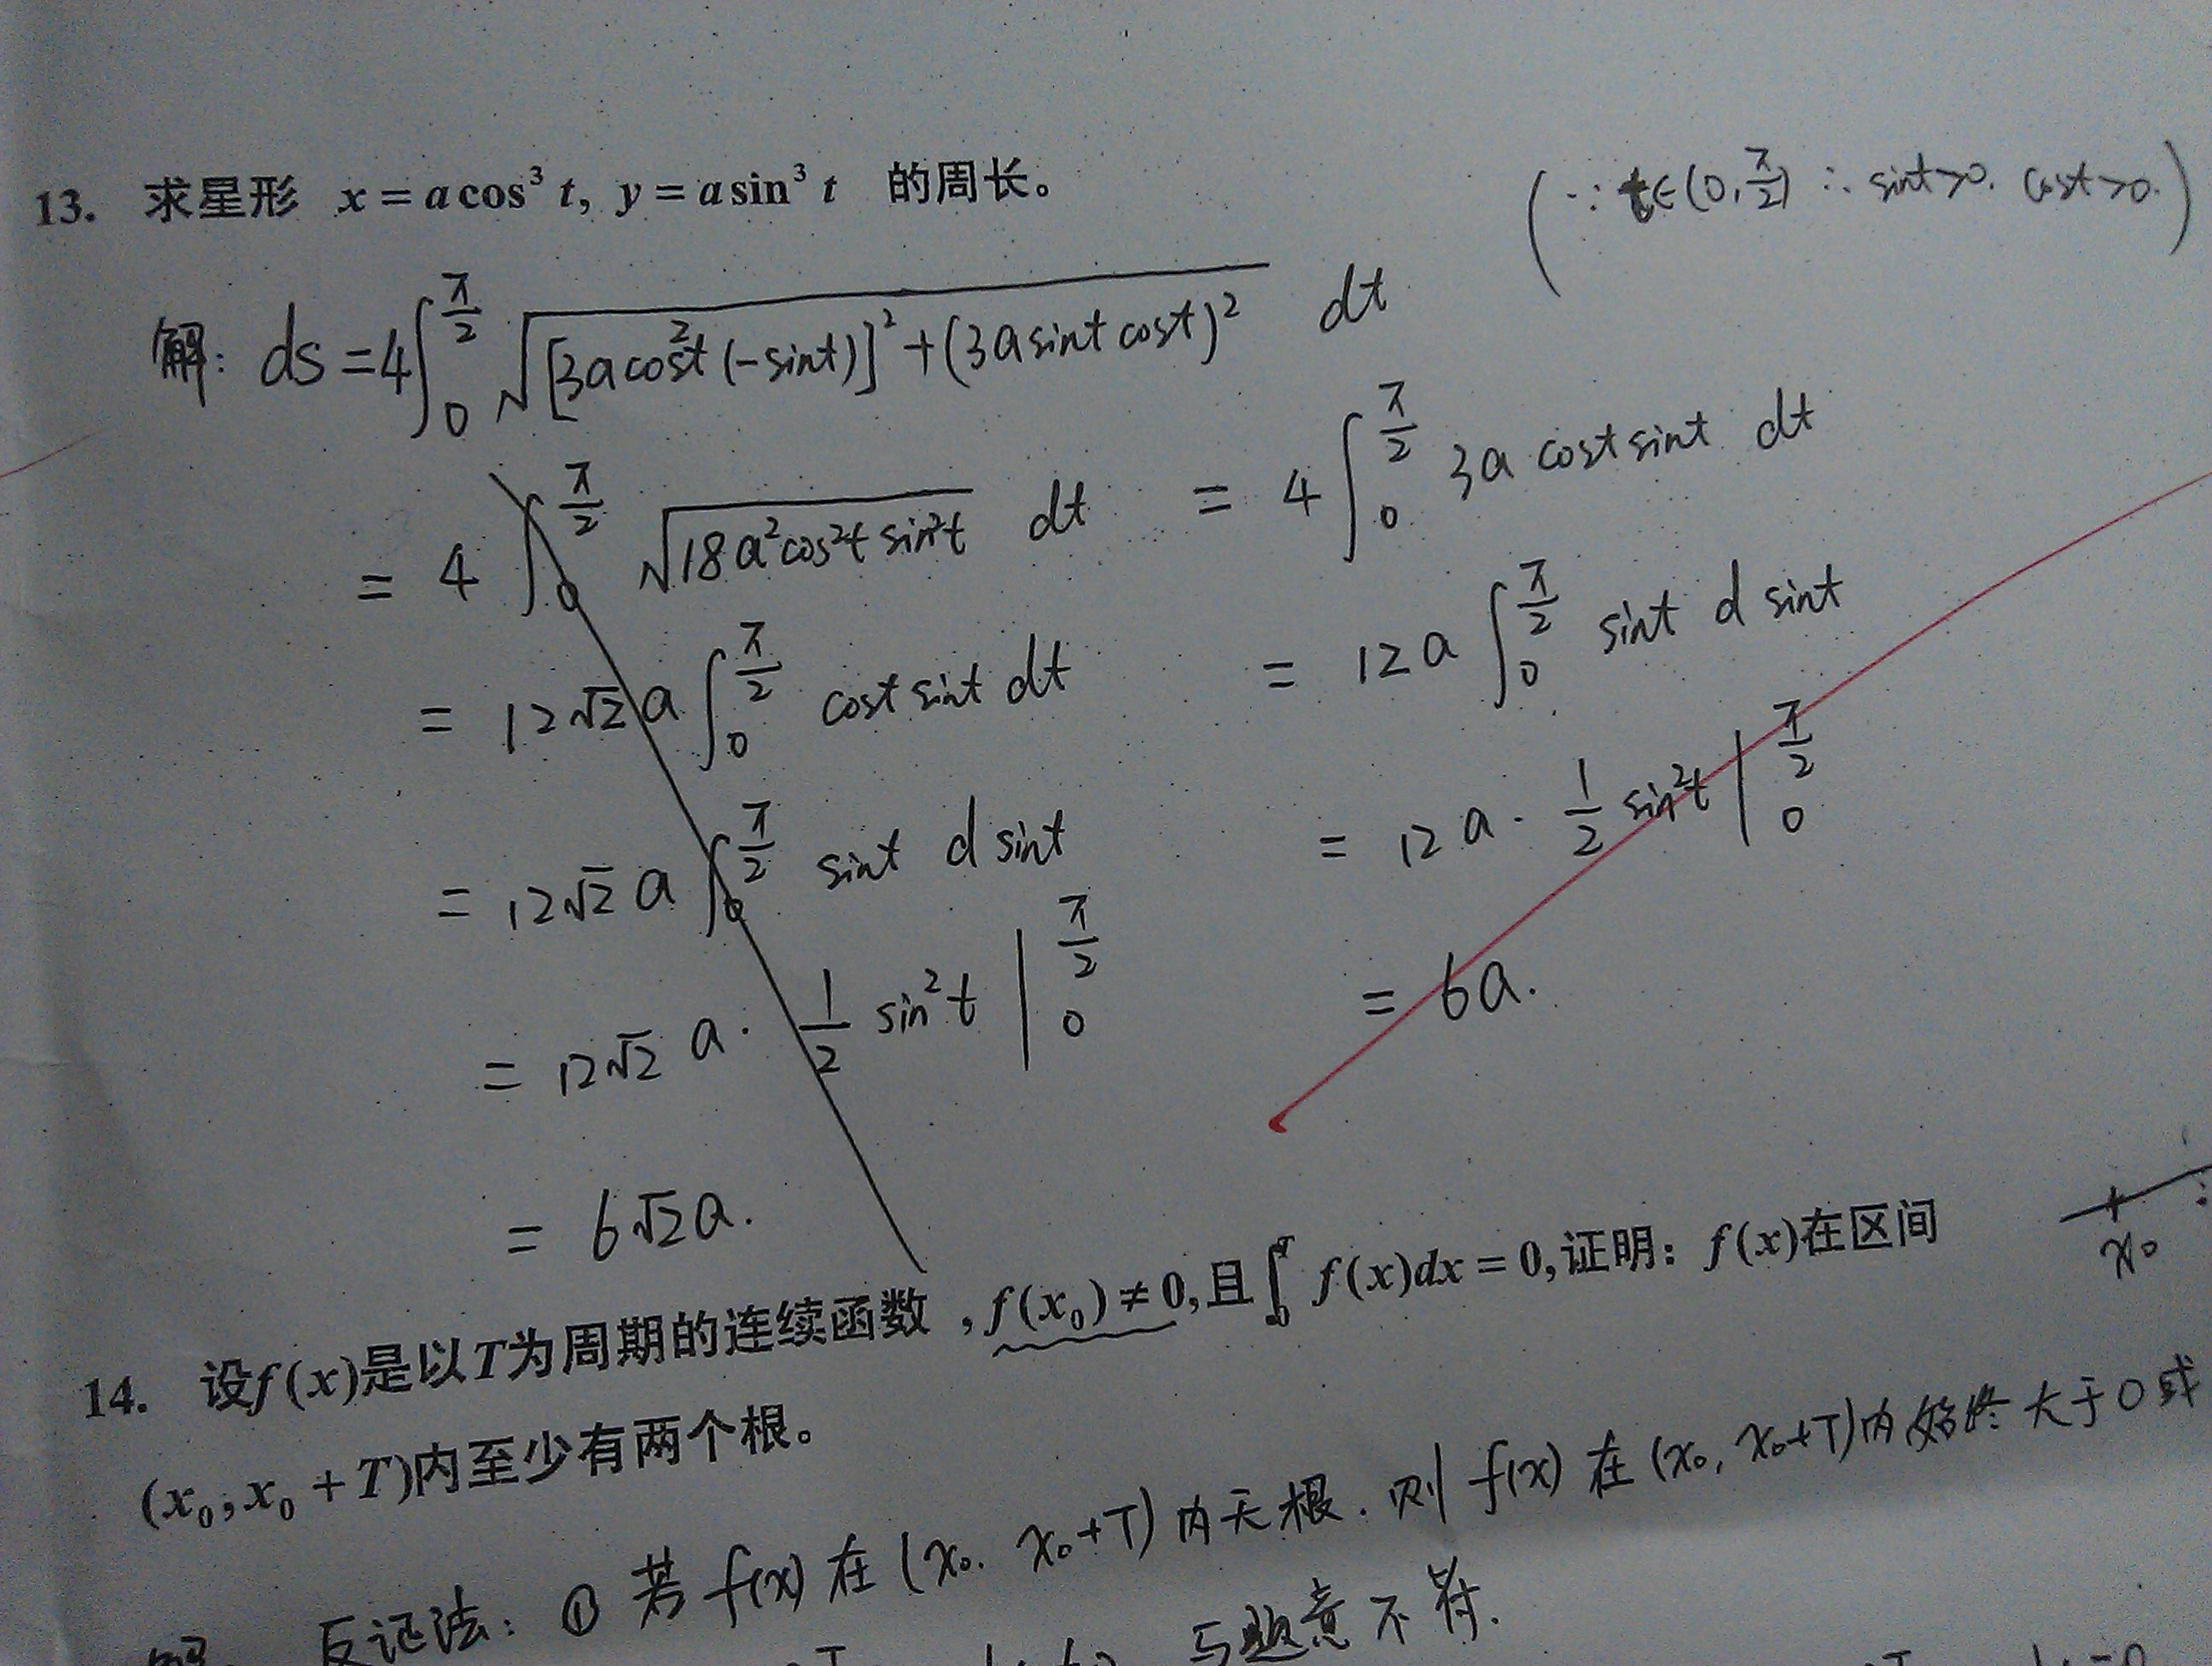 13. 求星形 x = a cos³ t, y = a sin³ t 的周长。
(∵ t∈(0, π/2) ∴ sint>0. cost>0.)
解: ds = 4∫₀^(π/2) √([3acos²t(-sint)]² + (3asint cost)²) dt
= 4∫₀^(π/2) √(18a²cos²t sin²t) dt = 4∫₀^(π/2) 3a cost sint dt
= 12√2 a∫₀^(π/2) cost sint dt = 12a∫₀^(π/2) sint d sint
= 12√2 a∫₀^(π/2) sint d sint = 12a · 1/2 sin²t |₀^(π/2)
= 12√2 a · 1/2 sin²t |₀^(π/2) = 6a.
= 6√2a.
14. 设f(x)是以T为周期的连续函数 , f(x₀) ≠ 0, 且∫₀^T f(x)dx = 0, 证明: f(x)在区间
x₀
(x₀, x₀ + T)内至少有两个根。
反证法: ① 若 f(x) 在 (x₀. x₀+T) 内无根. 则 f(x) 在 (x₀, x₀+T)内始终大于0或
与题意不符.